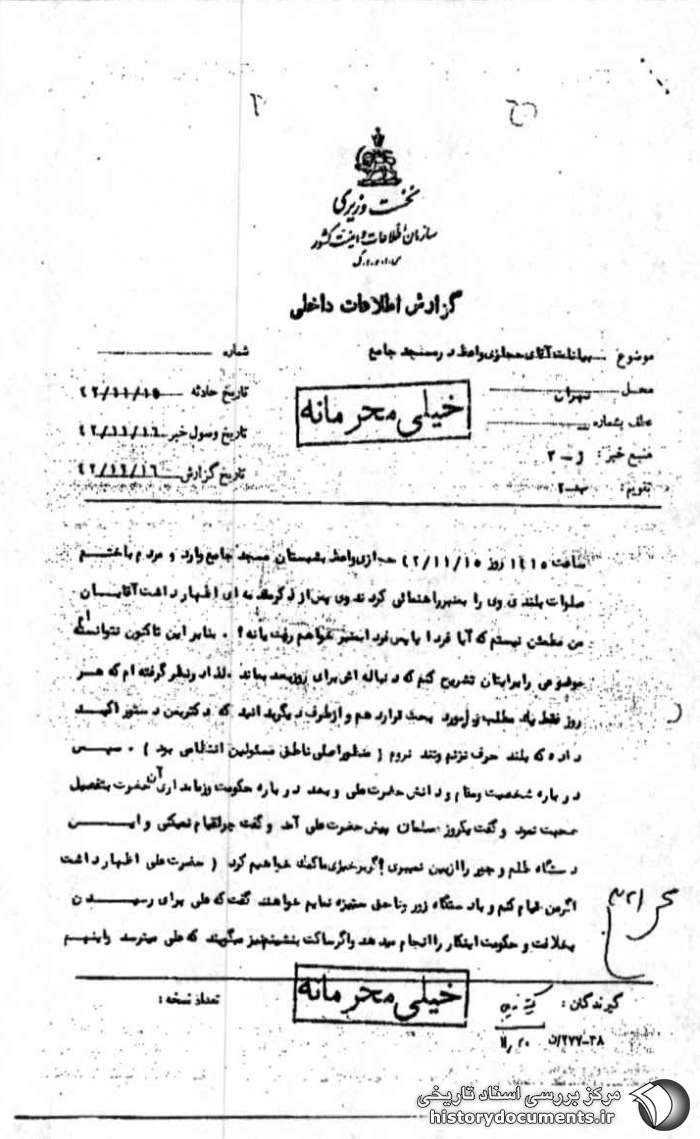 نخست وزیری
سازمان اطلاعات و امنیت کشور
س.ا.و.ا.ک
گزارش اطلاعات داخلی
موضوع بیانات آقای حجازی واعظ در مسجد جامع
شماره
محل تهران
تاریخ حادثه ۴۲/۱۱/۱۵
خیلی محرمانه
عطف بشماره
تاریخ وصول خبر ۴۲/۱۱/۱۶
منبع خبر: و - ۲
تاریخ گزارش ۴۲/۱۱/۱۶
تقویم: ب - ۲
ساعت روز ۴۲/۱۱/۱۵ حجازی واعظ بشبستان مسجد جامع وارد و مردم با ختم
صلوات بلندی وی را بمنبر راهنمائی کردند وی پس از ذکر مقدمه ای اظهار داشت آقایان
من مطمئن نیستم که آیا فردا یا پس فردا بمنبر خواهم رفت یا نه؟ . بنابر این تاکنون نتوانسته ام
موضوعی را برایتان تشریح کنم که دنباله اش برای روز بعد بماند . لذا در نظر گرفته ام که هر
روز فقط یک مطلب را مورد بحث قرار دهم و از طرف دیگر میدانید که دکتر بمن دستور اکید
داده که بلند حرف نزنم و تند نروم ( منظور اصلی ناطق مسئولین انتظامی بود ) . سپس
درباره شخصیت و مقام و دانش حضرت علی و بعد درباره حکومت و زمامداری آن حضرت بتفصیل
صحبت نمود و گفت یکروز سلمان پیش حضرت علی آمد و گفت چرا قیام نمیکنی و این
دستگاه ظلم و جور را از بین نمیبری؟ اگر برخیزی ما کمک خواهیم کرد ( حضرت علی اظهار داشت
اگر من قیام کنم و با دستگاه زور و ناحق ستیزه نمایم خواهند گفت که علی برای رسیدن
بخلافت و حکومت اینکار را انجام میدهد و اگر ساکت بنشینم نیز میگویند که علی میترسد و اینهم
خیلی محرمانه
گیرندگان:
تعداد نسخه:
۲۷۷-۳۸/ن
مرکز بررسی اسناد تاریخی
historydocuments.ir